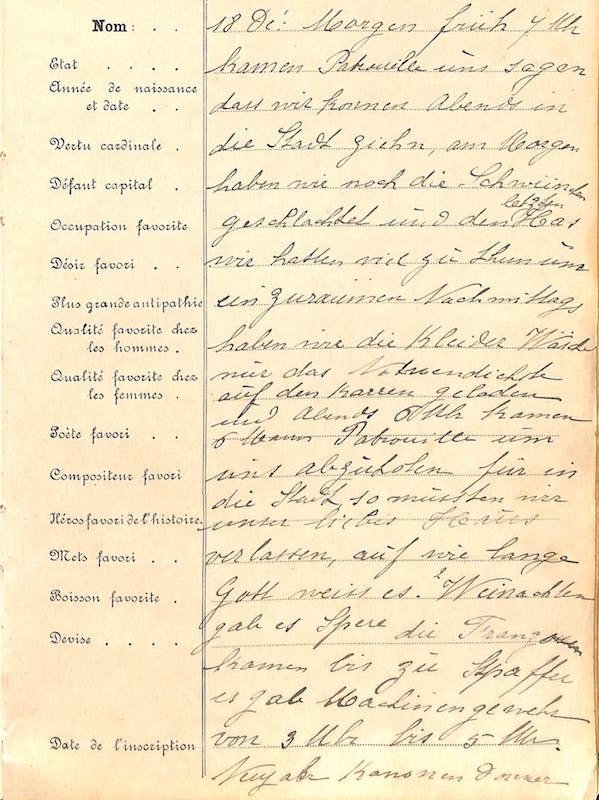 Nom : . . 18 Dé: Morgen früh 7 Uhr
Etat . . . . kamen Patrouille uns sagen
Année de naissance
et date . . dass wir konnen Abends in
Vertu cardinale . die Stadt ziehn, am Morgen
Défaut capital . haben wir noch die
letzten
Occupation favorite geschlachtet und den Has
Désir favori . . wir hatten viel zu thun um
Plus grande antipathie ein zuraümen Nachmittags
Qualité favorite chez
les hommes . haben wir die Kleider Wäsche
Qualité favorite chez nur das
les femmes . auf den Karren geladen
und Abends 6 Uhr kamen
Poète favori . . 6 Mann Patrouille um
Compositeur favori uns abzuholen für in
die Stadt, so müssten wir
Héros favori de l'histoire. unser liebes Haüs
Mets favori . . verlassen, auf wie lange
Boisson favorite . Gott weiss es. Weinachten
Devise . . . . gab es Spere die Franzosen
kamen bis zu
es gab Machinengewehr
Date de l'inscription von 3 Uhr bis 5 Uhr.
Neujahr Kanonen Donner